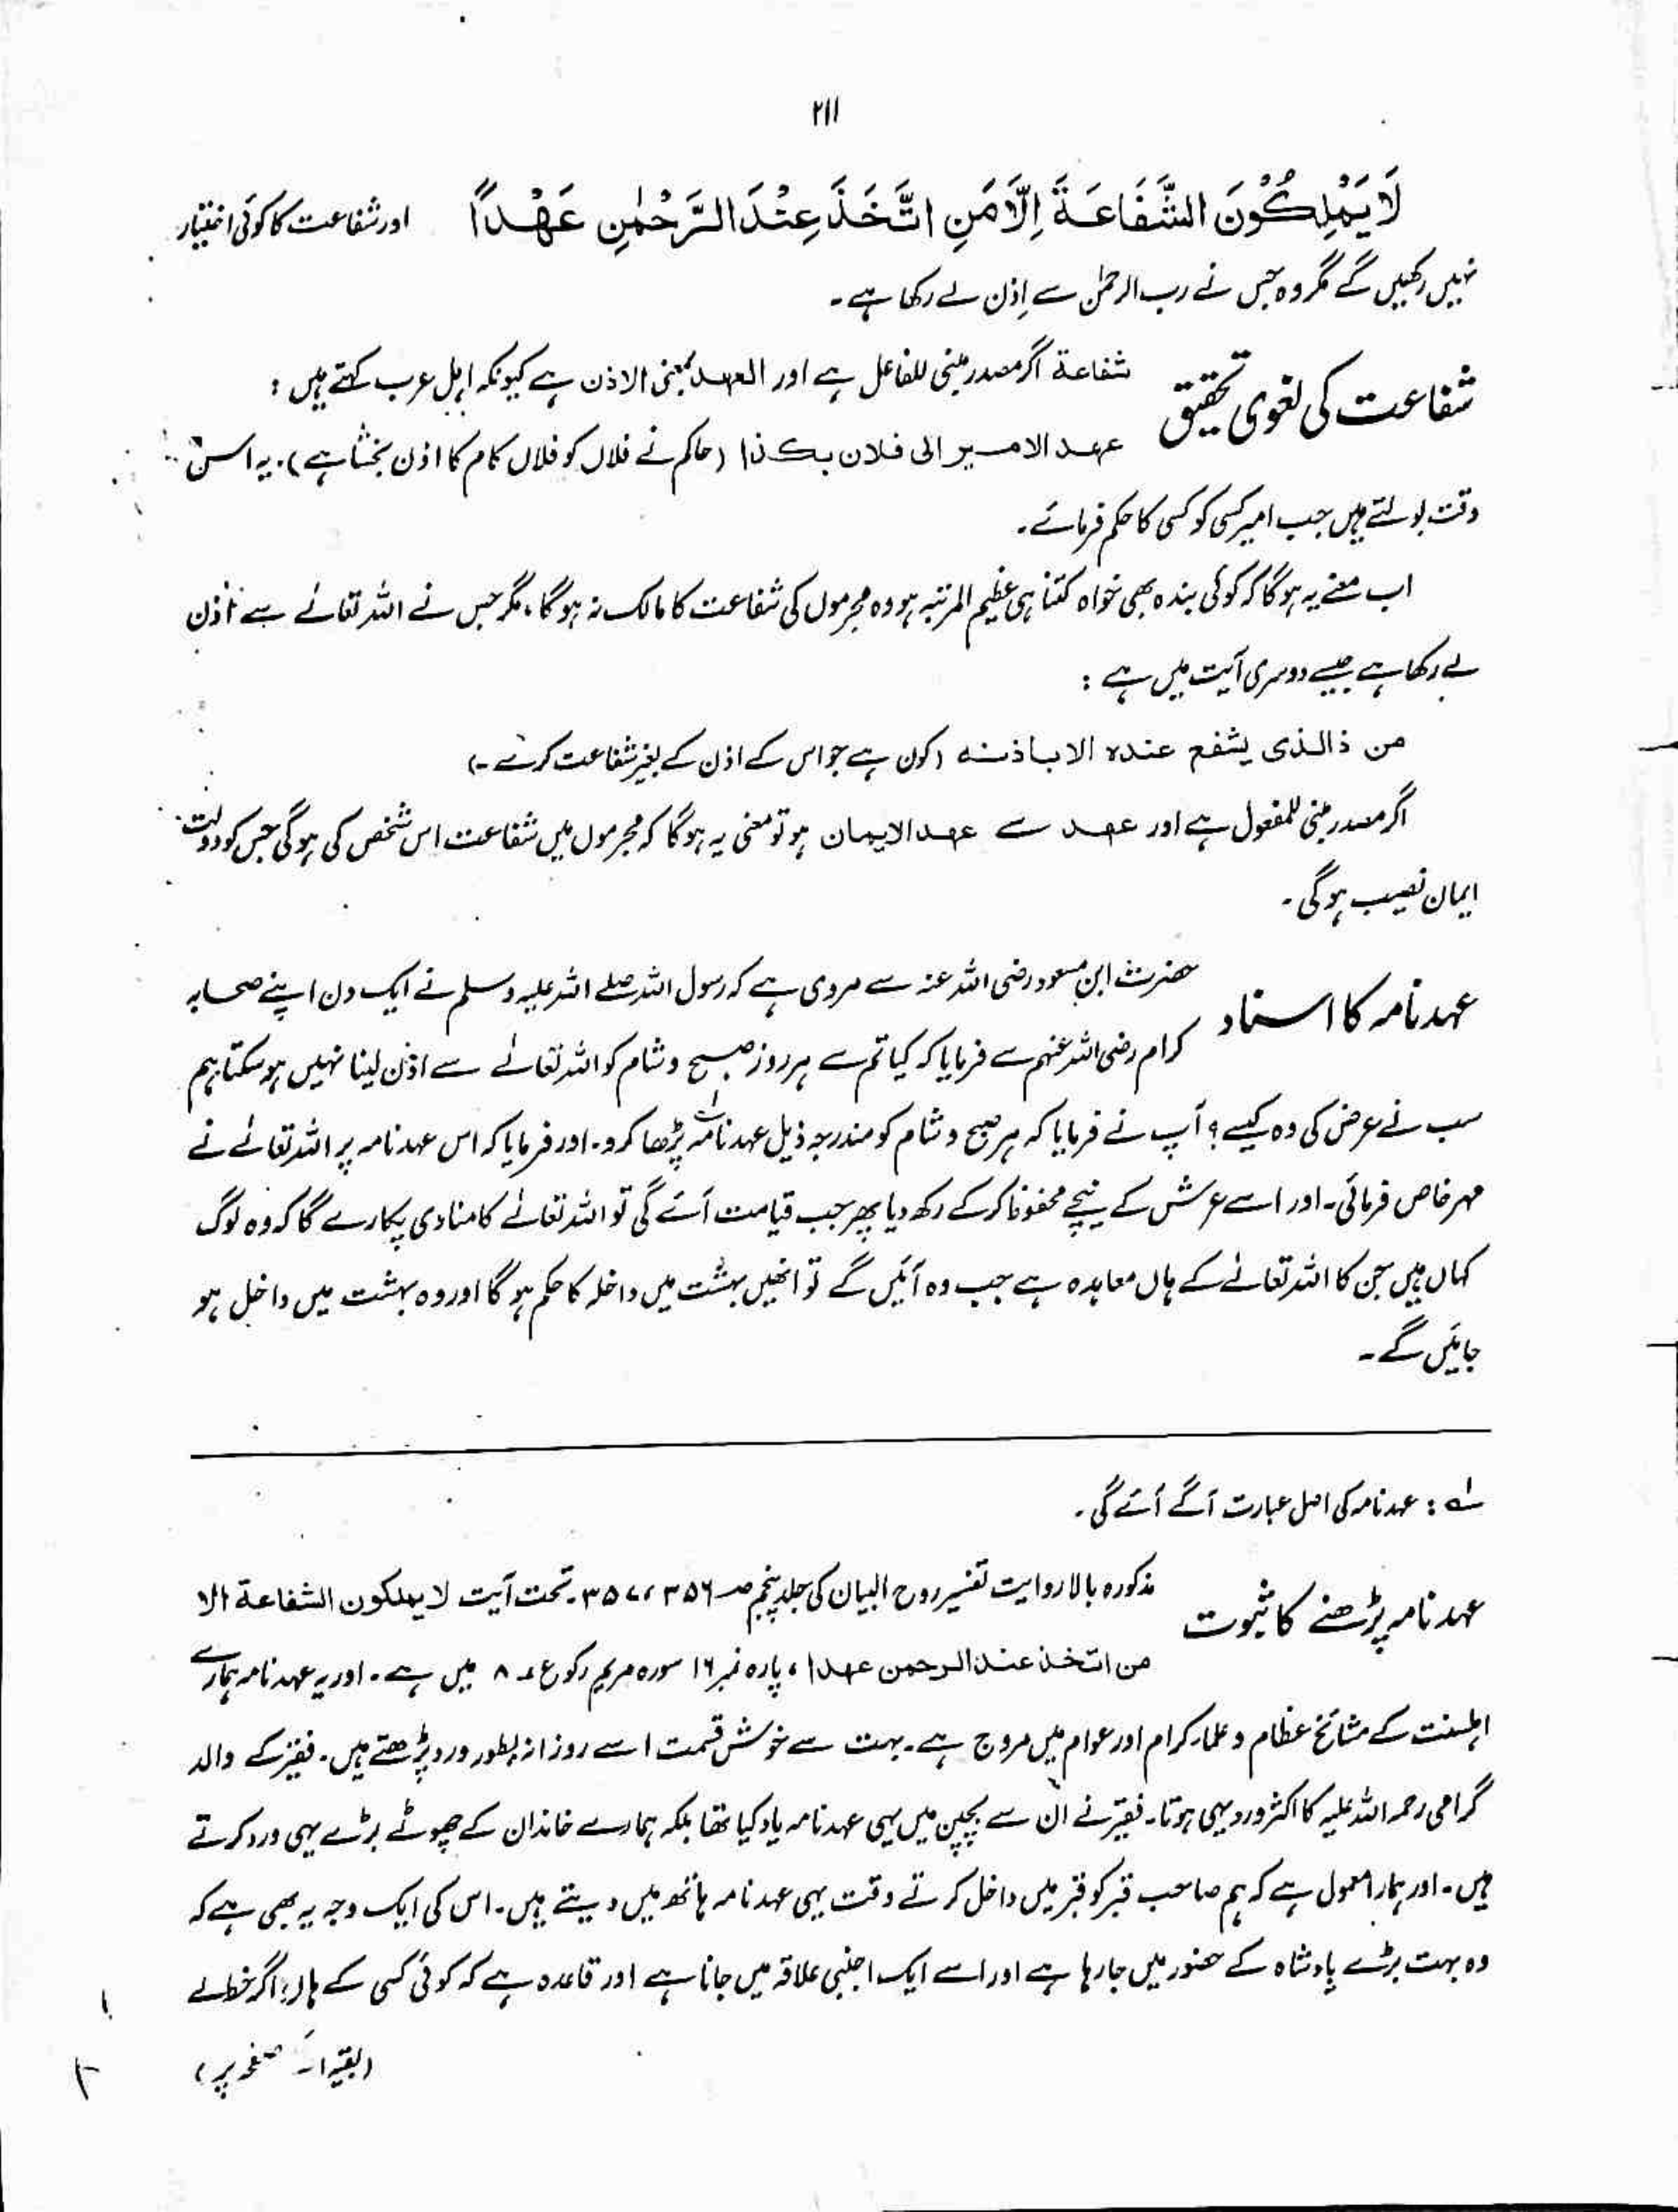 ۲۱۱
لَا يَمْلِكُوْنَ الشَّفَاعَةَ اِلَّا مَنِ اتَّخَذَ عِنْدَ الرَّحْمٰنِ عَهْدًا اور شفاعت کا کوئی اختیار
نہیں رکھیں گے مگر وہ جس نے رب الرحمٰن سے اِذن لے رکھا ہے۔
شفاعت کی لغوی تحقیق
شفاعة اگر مصدر مبنی للفاعل ہے اور العهد بمعنی الاذن ہے کیونکہ اہل عرب کہتے ہیں :
عهد الامیر الی فلان بکذا (حاکم نے فلاں کو فلاں کام کا اذن بخشا ہے)۔ یہ اس
وقت بولتے ہیں جب امیر کسی کو کسی کا حکم فرمائے۔
اب معنے یہ ہو گا کہ کوئی بندہ بھی خواہ کتنا ہی عظیم المرتبہ ہو وہ مجرموں کی شفاعت کا مالک نہ ہوگا، مگر جس نے اللہ تعالےٰ سے اذن
لے رکھا ہے جیسے دوسری آیت میں ہے :
من ذالذی یشفع عندہ الا باذنہ (کون ہے جو اس کے اذن کے بغیر شفاعت کرے۔)
اگر مصدر مبنی للمفعول ہے اور عهد سے عهد الایمان ہو تو معنی یہ ہو گا کہ مجرموں میں شفاعت اس شخص کی ہو گی جس کو دولت
ایمان نصیب ہو گی۔
عہد نامہ کا اسناد
حضرت ابن مسعود رضی اللہ عنہ سے مروی ہے کہ رسول اللہ صلے اللہ علیہ وسلم نے ایک دن اپنے صحابہ
کرام رضی اللہ عنہم سے فرمایا کہ کیا تم سے ہر روز صبح و شام کو اللہ تعالےٰ سے اذن لینا نہیں ہو سکتا ہم
سب نے عرض کی وہ کیسے؟ آپ نے فرمایا کہ ہر صبح و شام کو مندرجہ ذیل عہد نامہ لہ پڑھا کرو۔ اور فرمایا کہ اس عہد نامہ پر اللہ تعالےٰ نے
مہر خاص فرمائی۔ اور اسے عرش کے نیچے محفوظ کر کے رکھ دیا پھر جب قیامت آئے گی تو اللہ تعالےٰ کا منادی پکارے گا کہ وہ لوگ
کہاں ہیں جن کا اللہ تعالےٰ کے ہاں معاہدہ ہے جب وہ آئیں گے تو انھیں بہشت میں داخلہ کا حکم ہو گا اور وہ بہشت میں داخل ہو
جائیں گے۔
لہ : عہد نامہ کی اصل عبارت آگے آئے گی۔
عہد نامہ پڑھنے کا ثبوت
مذکورہ بالا روایت تفسیر روح البیان کی جلد پنجم صـ ۳۵۶، ۳۵۷۔ تحت آیت لا یملکون الشفاعة الا
من اتخذ عند الرحمن عهدا، پارہ نمبر ۱۶ سورہ مریم رکوع ع ۸ میں ہے۔ اور یہ عہد نامہ ہمارے
اہلسنت کے مشائخ عظام و علماء کرام اور عوام میں مروج ہے۔ بہت سے خوش قسمت اسے روزانہ بطور ورد پڑھتے ہیں۔ فقیر کے والد
گرامی رحمہ اللہ علیہ کا اکثر ورد یہی ہوتا۔ فقیر نے ان سے بچپن میں یہی عہد نامہ یاد کیا تھا بلکہ ہمارے خاندان کے چھوٹے بڑے یہی ورد کرتے
ہیں۔ اور ہمارا معمول ہے کہ ہم صاحب قبر کو قبر میں داخل کرتے وقت یہی عہد نامہ ہاتھ میں دیتے ہیں۔ اس کی ایک وجہ یہ بھی ہے کہ
وہ بہت بڑے بادشاہ کے حضور میں جا رہا ہے اور اسے ایک اجنبی علاقہ میں جانا ہے اور قاعدہ ہے کہ کوئی کسی کے ہاں اگر خط لے
(بقیہ صفحہ پر)